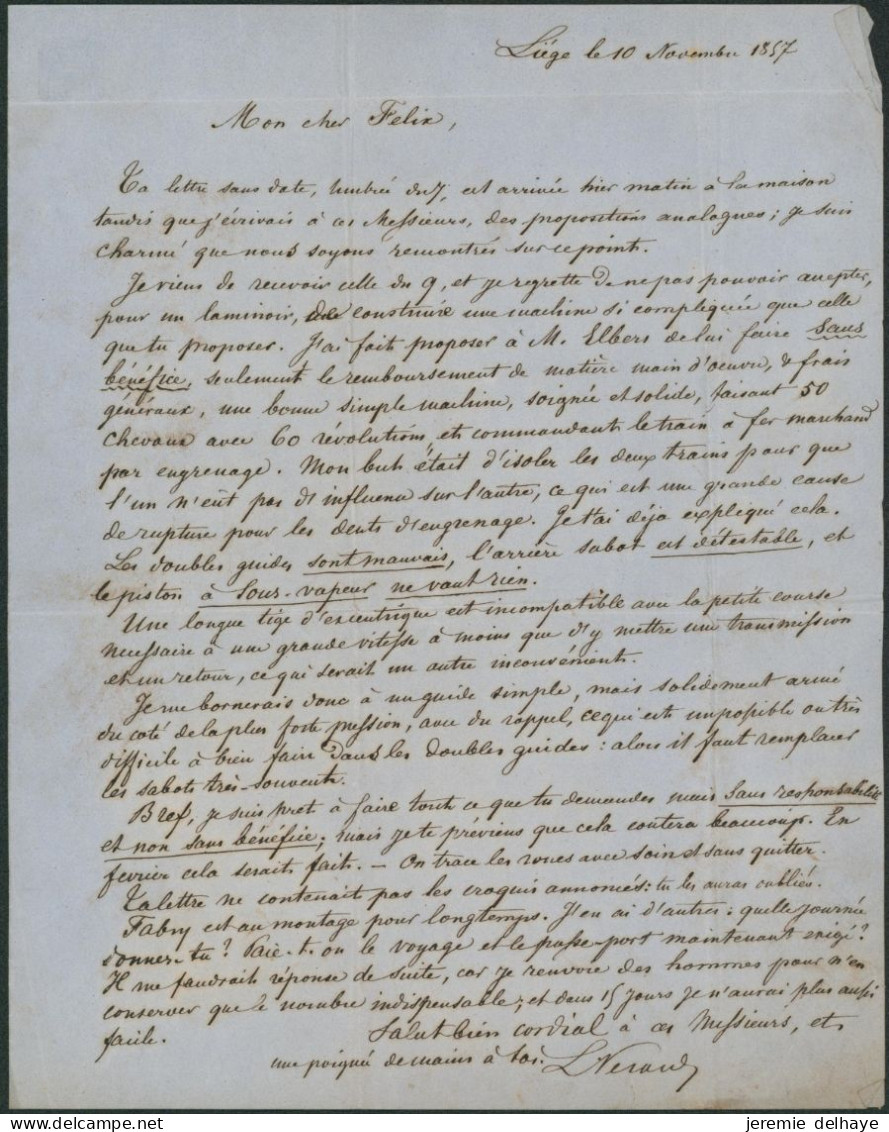 Liége le 10 Novembre 1857
Mon cher Felix,
Ta lettre sans date, timbrée du 7, est arrivée hier matin à la maison
tandis que j'écrivais à ces Messieurs, des propositions analogues; je suis
charmé que nous soyons remontrés sur ce point.
Je viens de recevoir celle du 9, et je regrette de ne pas pouvoir accepter,
pour un laminoir, de construire une machine si compliquée que celle
que tu proposes. J'ai fait proposer à M. Elbers de lui faire sans
bénéfice, seulement le remboursement de matière main d'oeuvre, & frais
généraux, une bonne simple machine, soignée et solide, faisant 50
chevaux avec 60 révolutions, et commandant le train à fer marchand
par engrenage. Mon but était d'isoler les deux trains pour que
l'un n'eut pas d'influence sur l'autre, ce qui est une grande cause
de rupture pour les dents d'engrenage. Je t'ai déja expliqué cela.
Les doubles guides sont mauvais, l'arrière sabot est détestable, et
le piston à sous-vapeur ne vaut rien.
Une longue tige d'excentrique est incompatible avec la petite course
necessaire à une grande vitesse à moins que d'y mettre une transmission
et un retour, ce qui serait un autre inconvénient.
Je me bornerais donc à un guide simple, mais solidement armé
du coté de la plus forte pression, avec du rappel, ce qui est impossible ou très
difficile à bien faire dans les doubles guides: alors il faut remplacer
les sabots très-souvent.
Bref, je suis pret à faire tout ce que tu demandes mais sans responsabilité
et non sans bénéfice; mais je te préviens que cela coutera beaucoup. En
fevrier cela serait fait. — On trace les roues avec soin et sans quitter.
Ta lettre ne contenait pas les croquis annoncés: tu les auras oubliés.
Fabry est au montage pour longtemps. J'en ai d'autres: quelle journée
donnes-tu? Paie-t-on le voyage et le passe-port maintenant exigé?
Il me faudrait réponse de suite, car je renvoie des hommes pour n'en
conserver que le nombre indispensable; et dans 15 jours je n'aurai plus aussi
facile.
Salut bien cordial à ces Messieurs, et
une poignée de mains à toi.
jeremie delhaye